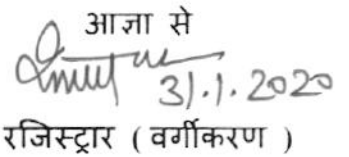 आज्ञा से
31.1.2020
रजिस्ट्रार ( वर्गीकरण )